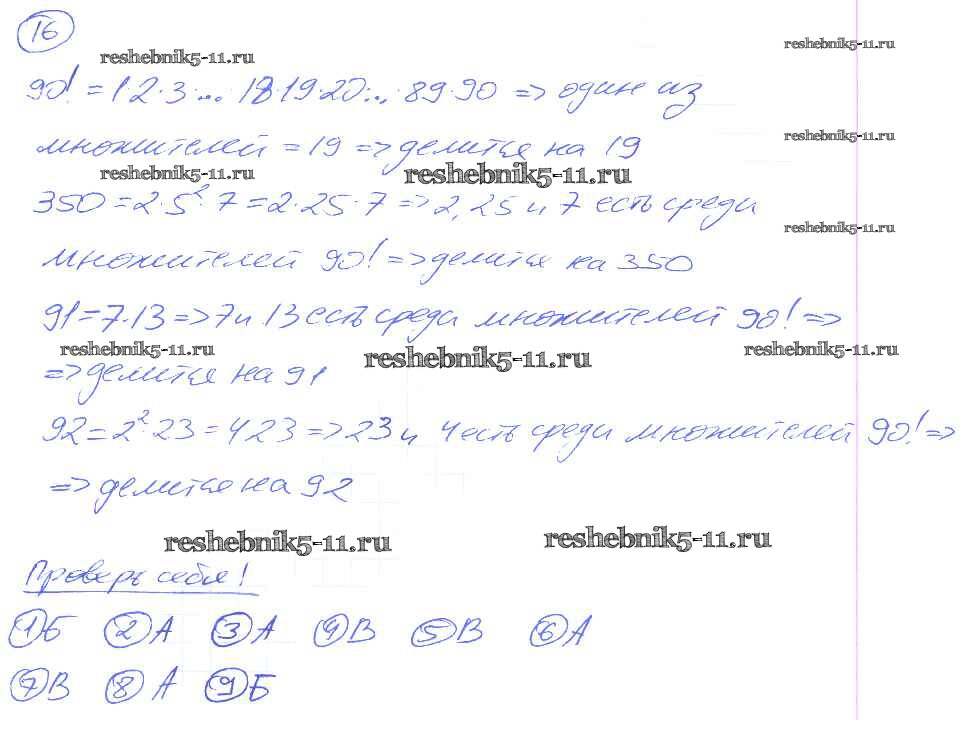 16
reshebnik5-11.ru reshebnik5-11.ru
90! = 1·2·3·... 18·19·20·... ·89·90 => один из
множителей = 19 => делится на 19
reshebnik5-11.ru
reshebnik5-11.ru reshebnik5-11.ru
350 = 2·5²·7 = 2·25·7 => 2, 25 и 7 есть среди
reshebnik5-11.ru
множителей 90! => делится на 350
91 = 7·13 => 7 и 13 есть среди множителей 90! =>
reshebnik5-11.ru reshebnik5-11.ru reshebnik5-11.ru
=> делится на 91
92 = 2²·23 = 4·23 => 23 и 4 есть среди множителей 90! =>
=> делится на 92
reshebnik5-11.ru reshebnik5-11.ru
Проверь себя!
1 Б 2 А 3 А 4 В 5 В 6 А
7 В 8 А 9 Б